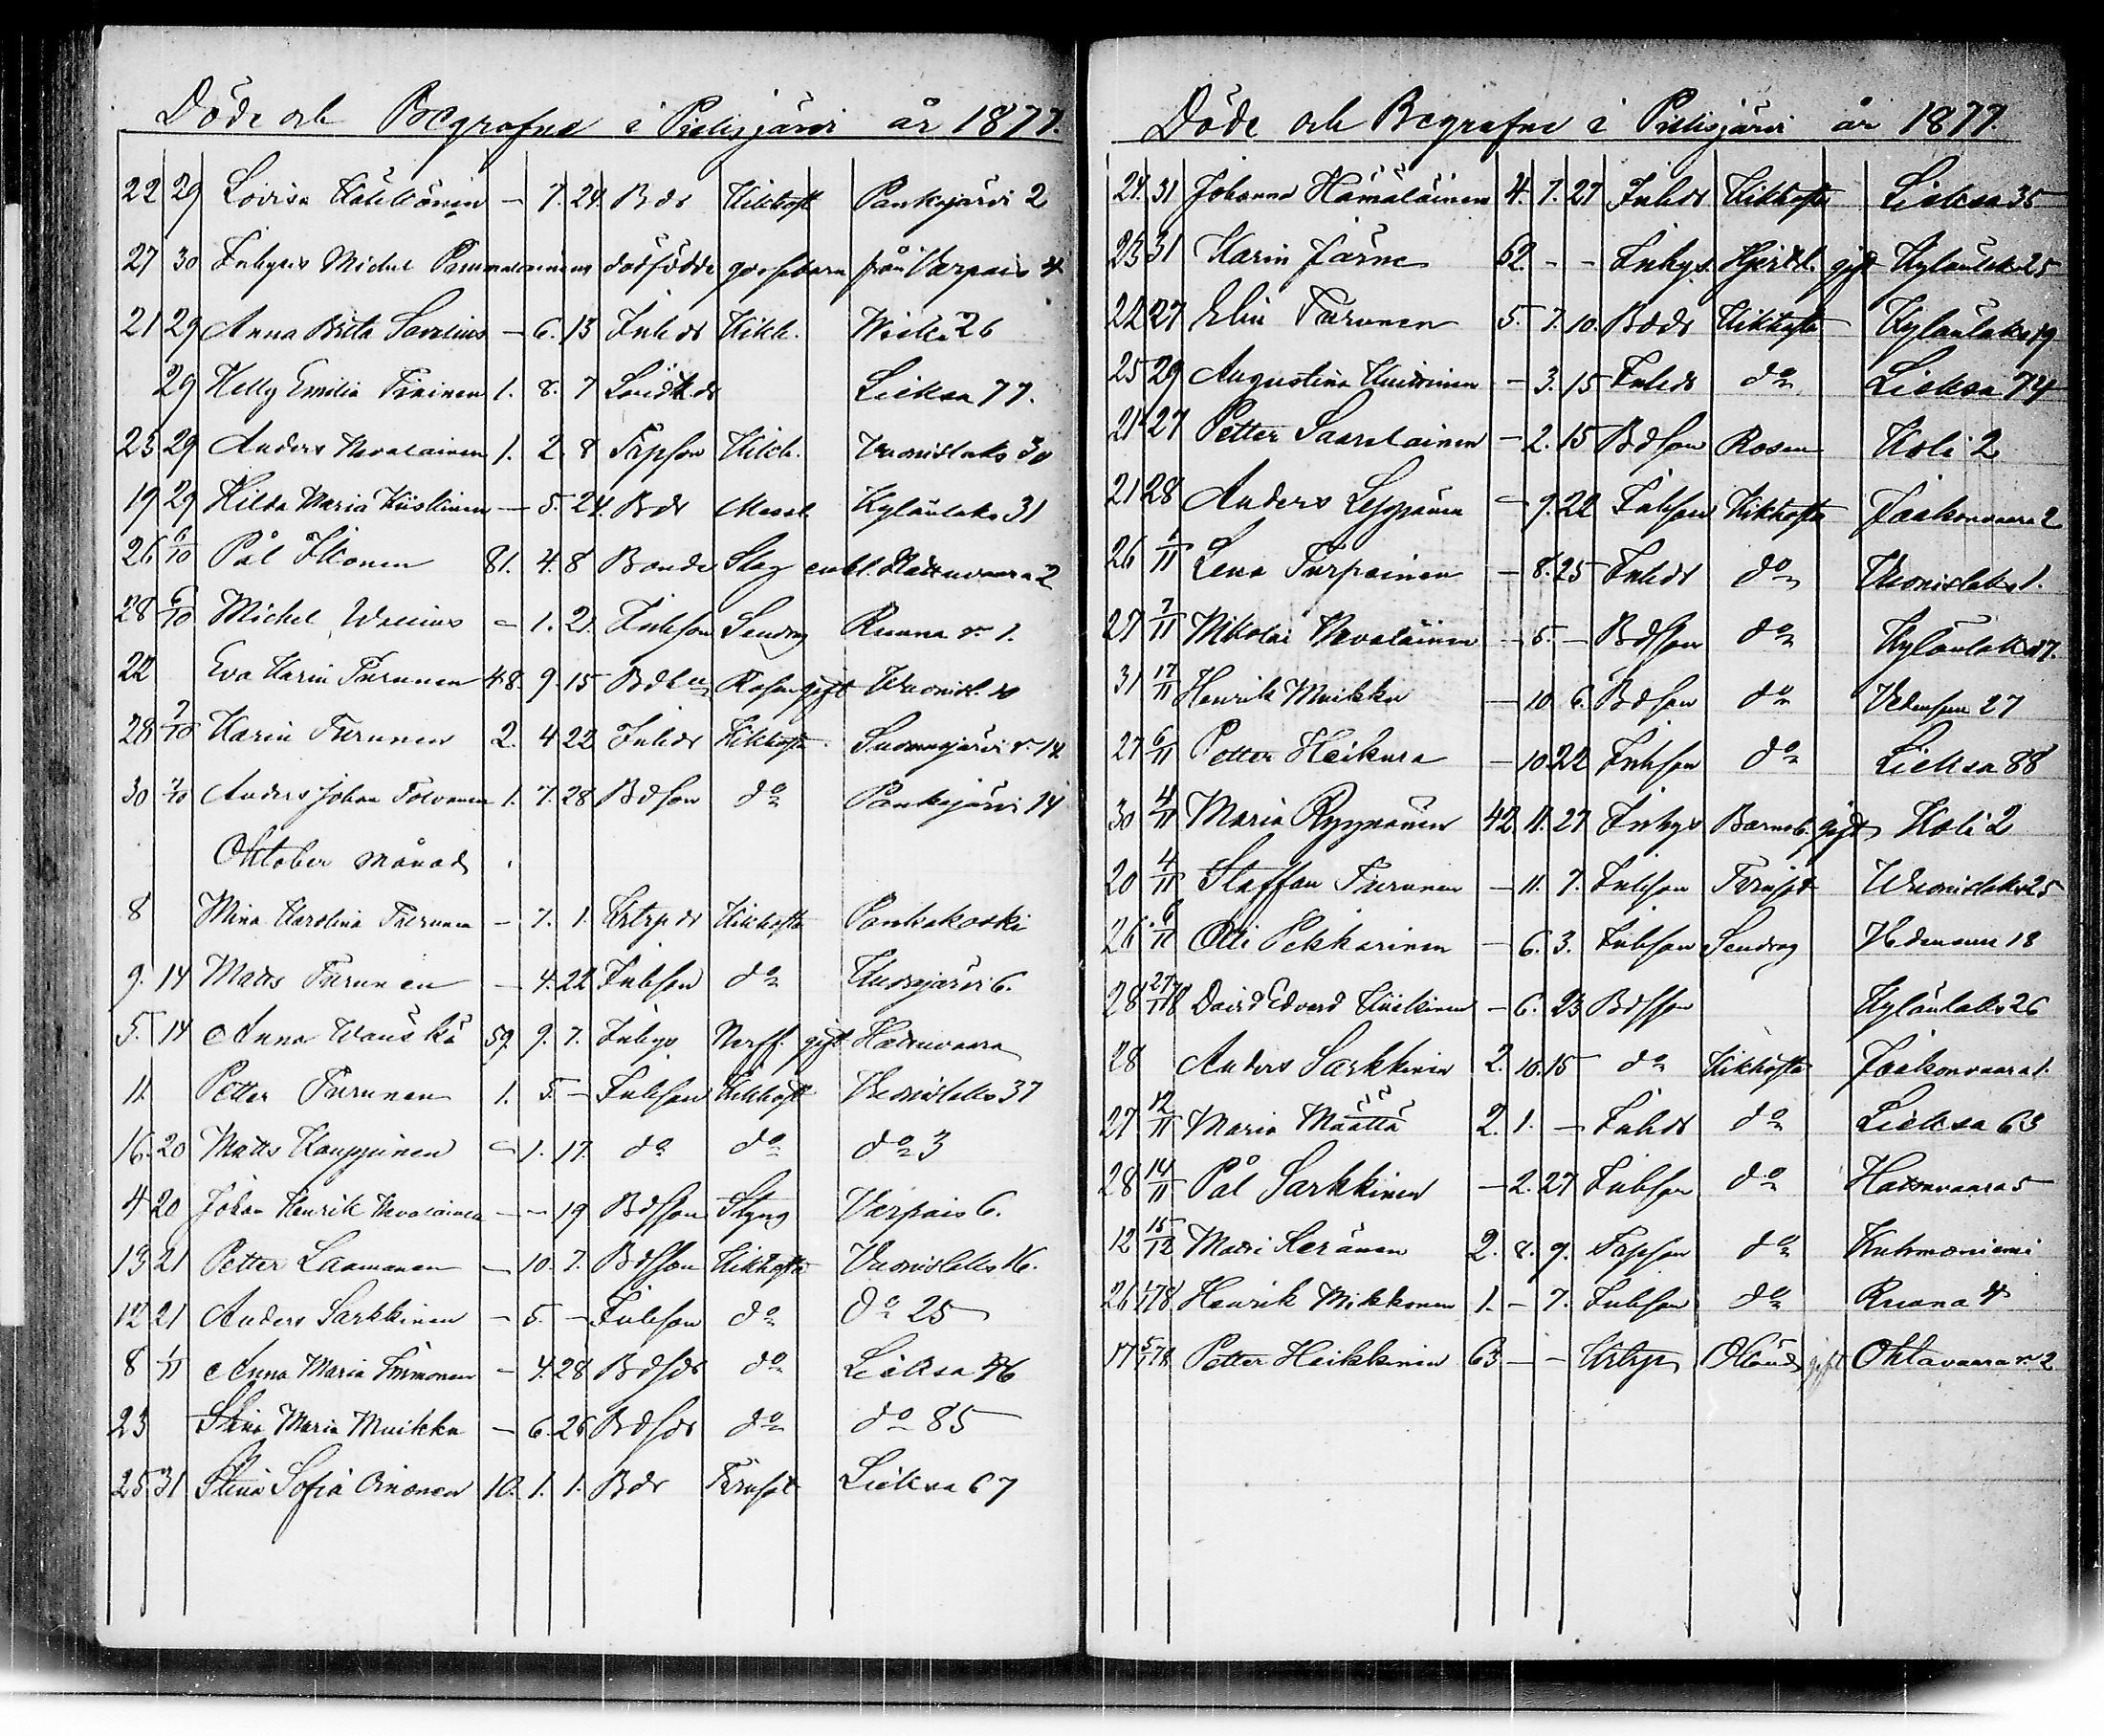 Döde och Begrafne i Pielisjärvi år 1877.
22 29 Lovisa - 7. 24. Bdr Kikhost Pankajärvi 2
27 30 Inhyses Michel dödfödde gossebarn från Varpais 4
21 29 Anna Brita Savelius - 6. 13 Inhdr Kikh. Wieki 26
29 Helly Emilia Piirinen 1. 8. 7 Lieksa 77.
23 29 Anders Nevalainen 1. 2. 8 Torpson Kikh. Vuonislaks 30
19 29 Hilda Maria Kiiskinen - 5. 24. Bdr Messl. Kylänlaks 31
26 6/10 Pål Ikonen 81. 4. 8 Bonde Slag enkl. Hattuvaara 2
28 6/10 Michel - 1. 21. Inhson Lendrag Ruuna n. 1.
22 Eva Karin Turunen 48. 9. 15 Rosen gift Vuonisl. 10
28 7/10 Karin Turunen 2. 4 22 Inhdr Kikhosta 14
30 7/10 Anders Johan Tolvanen 1. 7. 28 Bdson do Pankajärvi 14
Oktober månad
8 Mina Karolina Turunen - 7. 1. Kikhosta Pankakoski
9. 14 Matts Turunen - 4. 22 Inhson do 6.
5. 14 Anna Wänskä 59. 9. 7. Inhys Nerff. gift Hattuvaara
11. Petter Turunen 1. 5. - Inhson Kikhost Vuonislaks 37
16. 20 Matts Kauppinen - 1. 17. do do do 3
4 20 Johan Henrik Nevalainen - - 19 Bdson Styng Varpais 6.
13 21 Petter Laamanen - 10. 7. Bdsson Kikhosta Vuonislaks 16.
12 21 Anders Sarkkinen - 5. - Inhson do do 25
8 1/11 Anna Maria Immonen - 4. 28 Bdsdr do Lieksa 46
23 Stina Maria Muikku - 6. 26 Bdsdr do do 85
25. 31 Stina Sofia Oinonen 10. 1. 1. Bdr Tärnsot Lieksa 67
Döde och Begrafne i Pielisjärvi år 1877.
24. 31 Johanna Hämäläinen 4. 7. 27 Inhdr Kikhosta Lieksa 35
23 31 Karin Järne 52. - - Inhys. Hjertsl. gift Kylänlaks 25
22 27 Elin Turunen 5. 7. 10. Bddr Kikhosta Kylänlaks 19
25 29 Augustina - 3. 15 Inhdr do Lieksa 74
21 27 Petter Saarelainen - 2. 15 Bdson Rosen Koli 2
21 28 Anders Leppänen - 9. 22 Inhson Kikhosta Jaakonvaara 2
26 /11 Lena Turpeinen - 8. 25 Inhdr do Vuonislaks 1.
27 7/11 Nikolai Nevalainen - 5. - Bdsson do Kylänlaks 17.
31 17/11 Henrik Muikku - 10. 6. Bdson do 27
27 6/11 Petter Heikura - 10. 22 Inhson do Lieksa 88
30 4/11 Maria Ryynänen 42 11. 27 Inhys Barnsb. gift Koli 2
20 4/11 Staffan Turunen - 11. 7. Inhson Tärnsot Vuonislaks 25
26 6/11 Olli Pekkarinen - 6. 3. Inhson Lendrag 18
28 David Edvard Kiiskinen - 6. 23 Bdsson Kylänlaks 26
28 Anders Sarkkinen 2. 10. 15 do Kikhosta Jaakonvaara 1.
27 12/11 Maria Määttä 2. 1. - Inhdr do Lieksa 63
28 14/11 Pål Sarkkinen - 2. 27 Inhson do Hattuvaara 5
12 15/12 Matti Keränen 2. 8. 9. Torpson do Kuhmoniemi
26 1/1 78 Henrik Mikkonen 1. - 7. Inhson do Ruuna 4
17 5/1 78 Petter Heikkinen 63 - - Okänd gift Ohtavaara n. 2